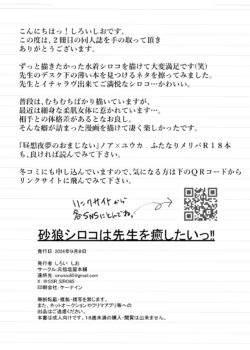 こんにちはっ！しろいしおです。
この度は、２冊目の同人誌を手の取って頂き
ありがとうございます。
ずっと描きたかった水着シロコを描けて大変満足です(笑)
先生のデスク下の薄い本を見つけるネタを擦ってみました。
先生とイチャラヴ出来てご満悦なシロコ…かわいい。
普段は、むちむちばかり描いていますが、
最近は細身な柔肌女体に惹かれています…。
相手との体格差があるとなお良し。
そんな癖が詰まった漫画を描けて凄く楽しかったです。
「昼想夜夢のおまじない」ノア×ユウカ　ふたなりメリバＲ１８本
も、良ければ読んでみて下さい。
冬コミにも申し込んでいますので、気になる方は下のＱＲコードから
リンクサイトに飛んでみて下さい。
リンクサイトから
各SNSにとんでね。
砂狼シロコは先生を癒したいっ!!
発行日:2024年9月8日
発行者:しろい しお
サークル:元祖塩屋本舗
X:@SSR_SIRO65
印刷会社:ケーナイン
無断転載・複製・複写を禁じます。
また、ネットオークションやフリマアプリ等への
出品はご遠慮ください。
本書は成人向けです、18歳未満の購入・閲覧は出来ません。